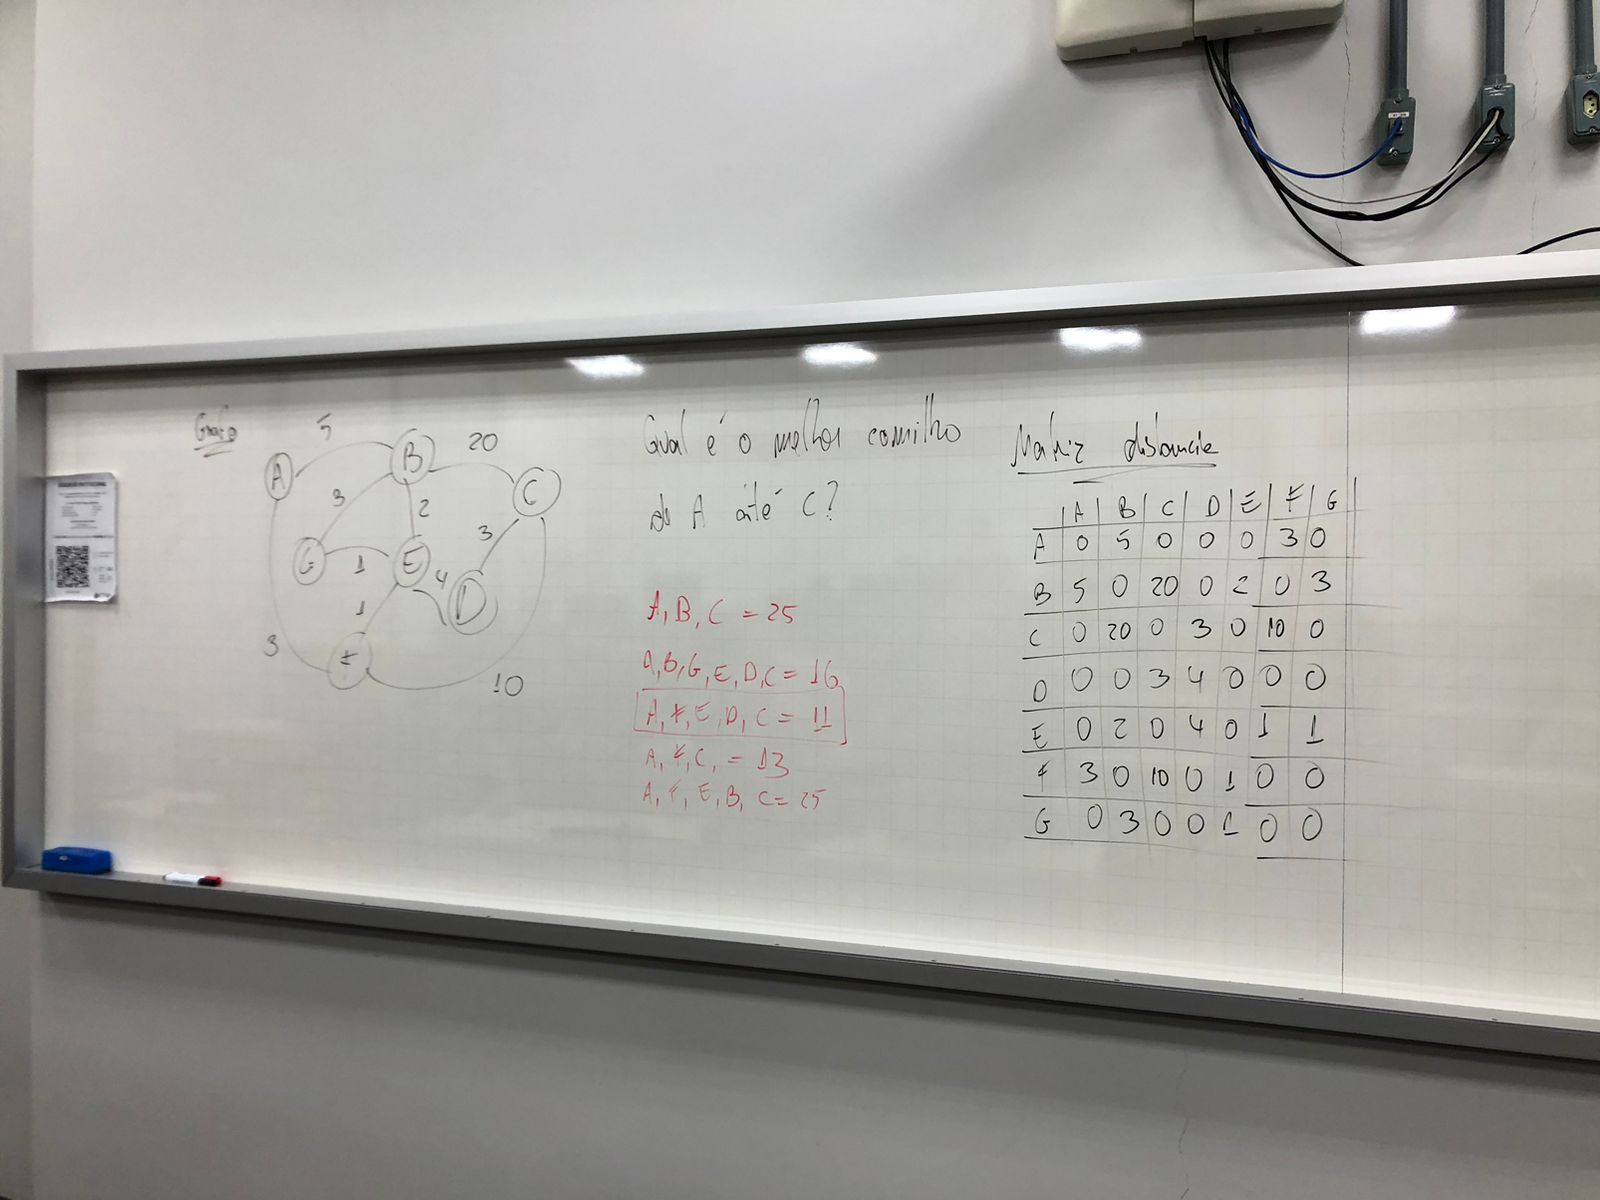 Grafo
5
20
A
B
C
3
2
3
G
1
E
4
D
1
3
F
10
Qual é o melhor caminho
de A até C?
A, B, C = 25
A, B, G, E, D, C = 16
A, F, E, D, C = 11
A, F, C, = 13
A, F, E, B, C = 25
Matriz distancia
A B C D E F G
A 0 5 0 0 0 3 0
B 5 0 20 0 2 0 3
C 0 20 0 3 0 10 0
D 0 0 3 4 0 0 0
E 0 2 0 4 0 1 1
F 3 0 10 0 1 0 0
G 0 3 0 0 1 0 0